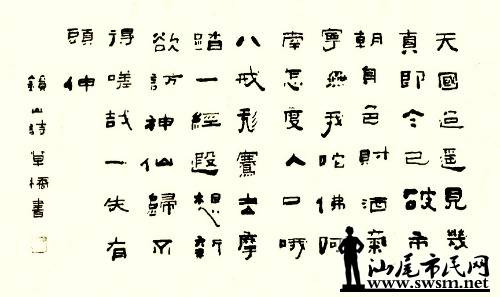 天國迢遥見幾
真即今已破
朝身色財酒氣
寧無我陀佛阿
南怎度人口哦
八戒騫去摩
踏一經遐想
欲訪神仙歸不
得嗟哉一失有
頭伸
鏡山詩草橋書
汕尾市民网
www.swsm.net